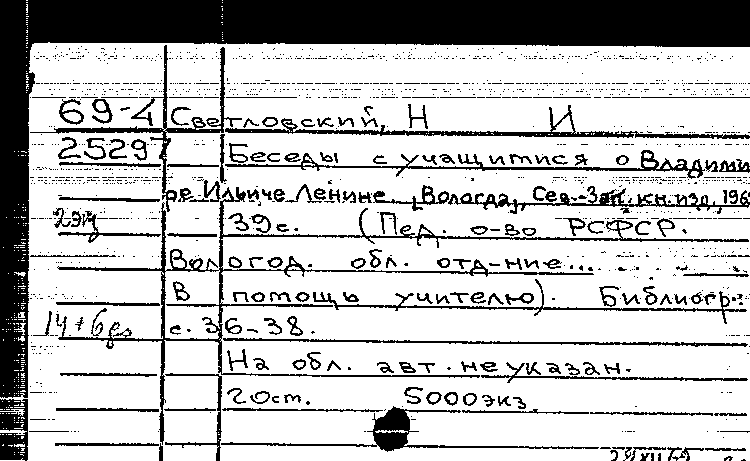 69-4 Светловский, Н И
25297 Беседы с учащимися о Владими
ре Ильиче Ленине. [Вологда], Сев.-Зап. кн. изд., 196
2 экз 39 с. (Пед. о-во РСФСР.
Вологод. обл. отд-ние...
В помощь учителю). Библиогр.:
14+6 с. 36-38.
На обл. авт. не указан.
20 ст. 5000 экз.